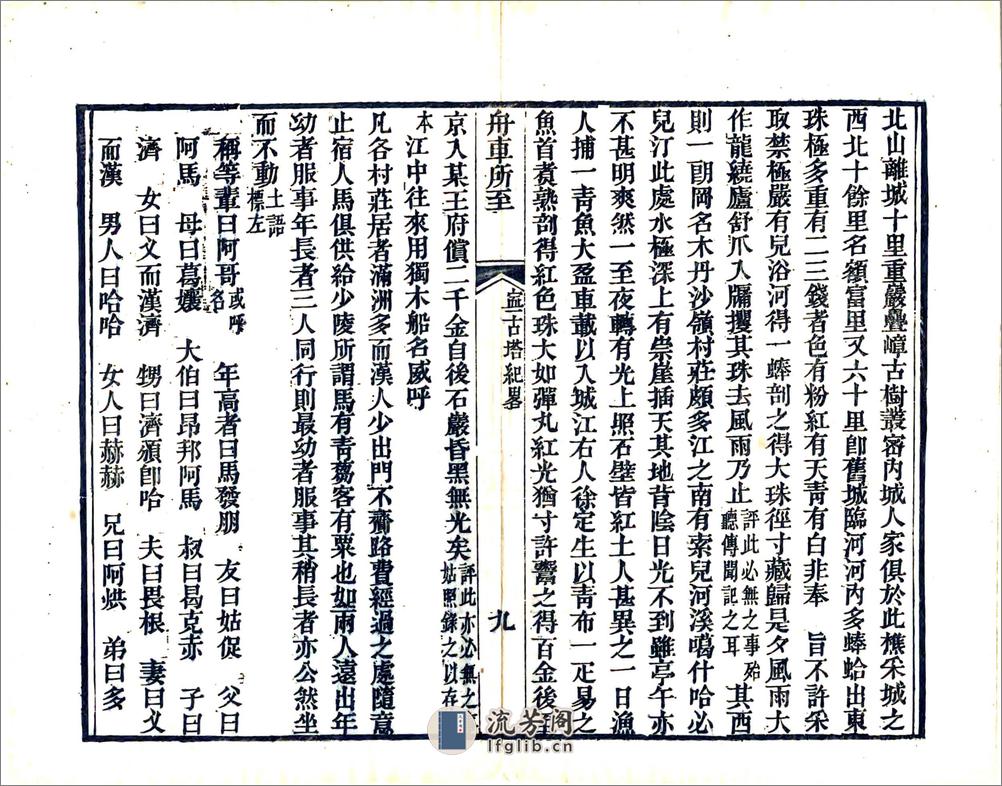 北山離城十里重巖疊嶂古樹叢密內城人家俱於此樵采城之
西北十餘里名額富里又六十里卽舊城臨河河內多蜯蛤出東
珠極多重有二三錢者色有粉紅有天青有白非奉 旨不許采
取禁極嚴有兒浴河得一蜯剖之得大珠徑寸藏歸是夕風雨大
作龍繞廬舒爪入牖攫其珠去風雨乃止評此必無之事殆聽傳聞記之耳 其西
則一朗岡名木丹沙嶺村莊頗多江之南有索兒河溪噶什哈必
兒汀此處水極深上有崇崖插天其地背陰日光不到雖亭午亦
不甚明爽然一至夜轉有光上照石壁皆紅土人甚異之一日漁
人捕一青魚大盈車載以入城江右人徐定生以青布一疋易之
魚首煮熟剖得紅色珠大如彈丸紅光猶寸許鬻之得百金後
舟車所至 寧古塔紀畧 九
京入某王府償二千金自後石巖昏黑無光矣評此亦必無之 姑照錄之以存
本 江中往來用獨木船名威呼
凡各村莊居者滿洲多而漢人少出門不齎路費經過之處隨意
止宿人馬俱供給少陵所謂馬有青芻客有粟也如兩人遠出年
幼者服事年長者三人同行則最幼者服事其稍長者亦公然坐
而不動土語標左
稱等輩曰阿哥或呼名 年高者曰馬發朋 友曰姑促 父曰
阿馬 母曰葛孃 大伯曰昂邦阿馬 叔曰曷克赤 子曰
濟 女曰叉而漢濟 甥曰濟頷卽哈 夫曰畏根 妻曰叉
而漢 男人曰哈哈 女人曰赫赫 兄曰阿烘 弟曰多
流芳閣
lfglib.cn